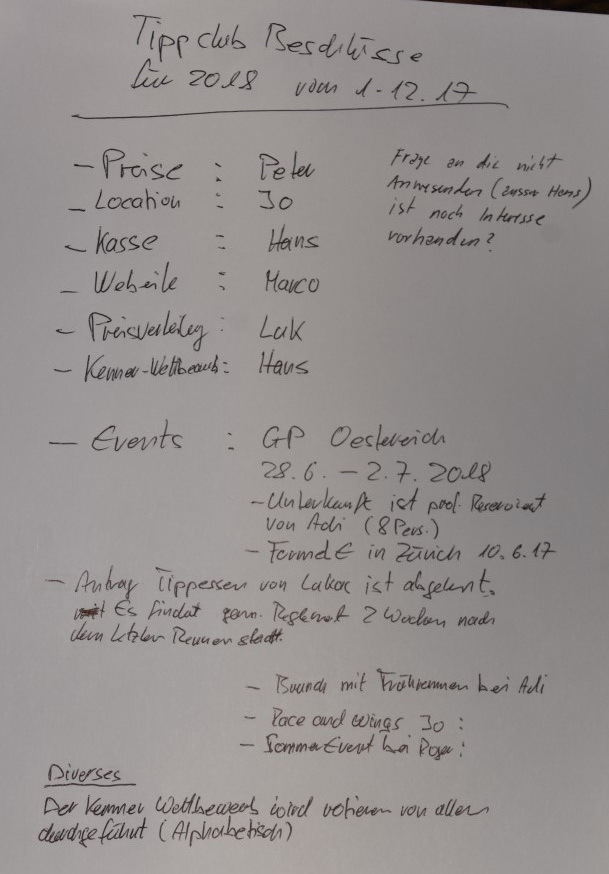 Tippclub Beschlüsse
für 2018 vom 1.12.17
- Preise : Peter
- Location : Jo
- Kasse : Hans
- Webseite : Marco
- Preisverleihg : Luk
- Kenner-Wettbewerb : Hans
Frage an die nicht
Anwesenden (ausser Hans)
ist noch Interesse
vorhanden?
- Events : GP Oesterreich
28.6. - 2.7. 2018
- Unterkunft ist prof. Reserviert
von Adi (8 Pers.)
- Formel E in Zürich 10.6.17
- Antrag Tippessen von Lukas ist abgelehnt.
Es findet gem. Reglement 2 Wochen nach
dem letzten Rennen statt.
- Brunch mit Frührennen bei Adi
- Race and Wings Jo :
- SommerEvent bei Roger :
Diverses
Der Kenner Wettbewerb wird rotieren von allen
durchgeführt (Alphabetisch)